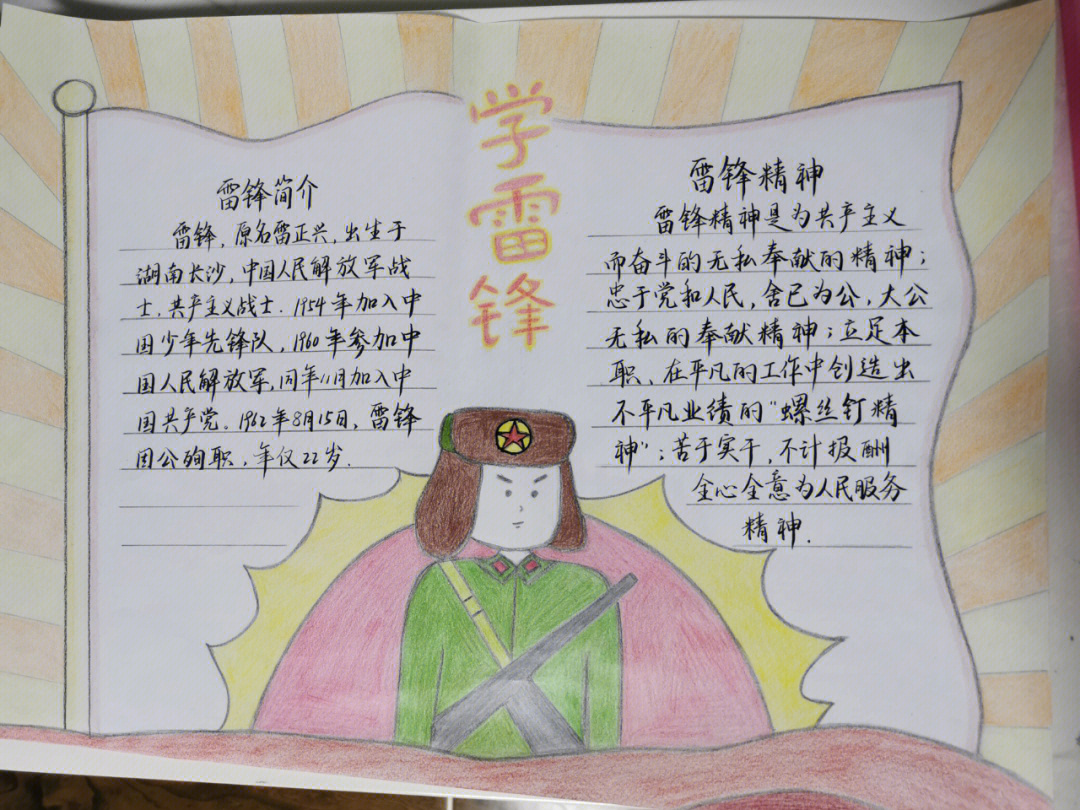 学雷锋
雷锋简介
雷锋,原名雷正兴,出生于
湖南长沙,中国人民解放军战
士.共产主义战士.1954年加入中
国少年先锋队,1960年参加中
国人民解放军,同年11月加入中
国共产党。1962年8月15日,雷锋
因公殉职,年仅22岁.
雷锋精神
雷锋精神是为共产主义
而奋斗的无私奉献的精神;
忠于党和人民,舍己为公,大公
无私的奉献精神;立足本
职、在平凡的工作中创造出
不平凡业绩的"螺丝钉精
神";苦于实干,不计报酬
全心全意为人民服务
精神.